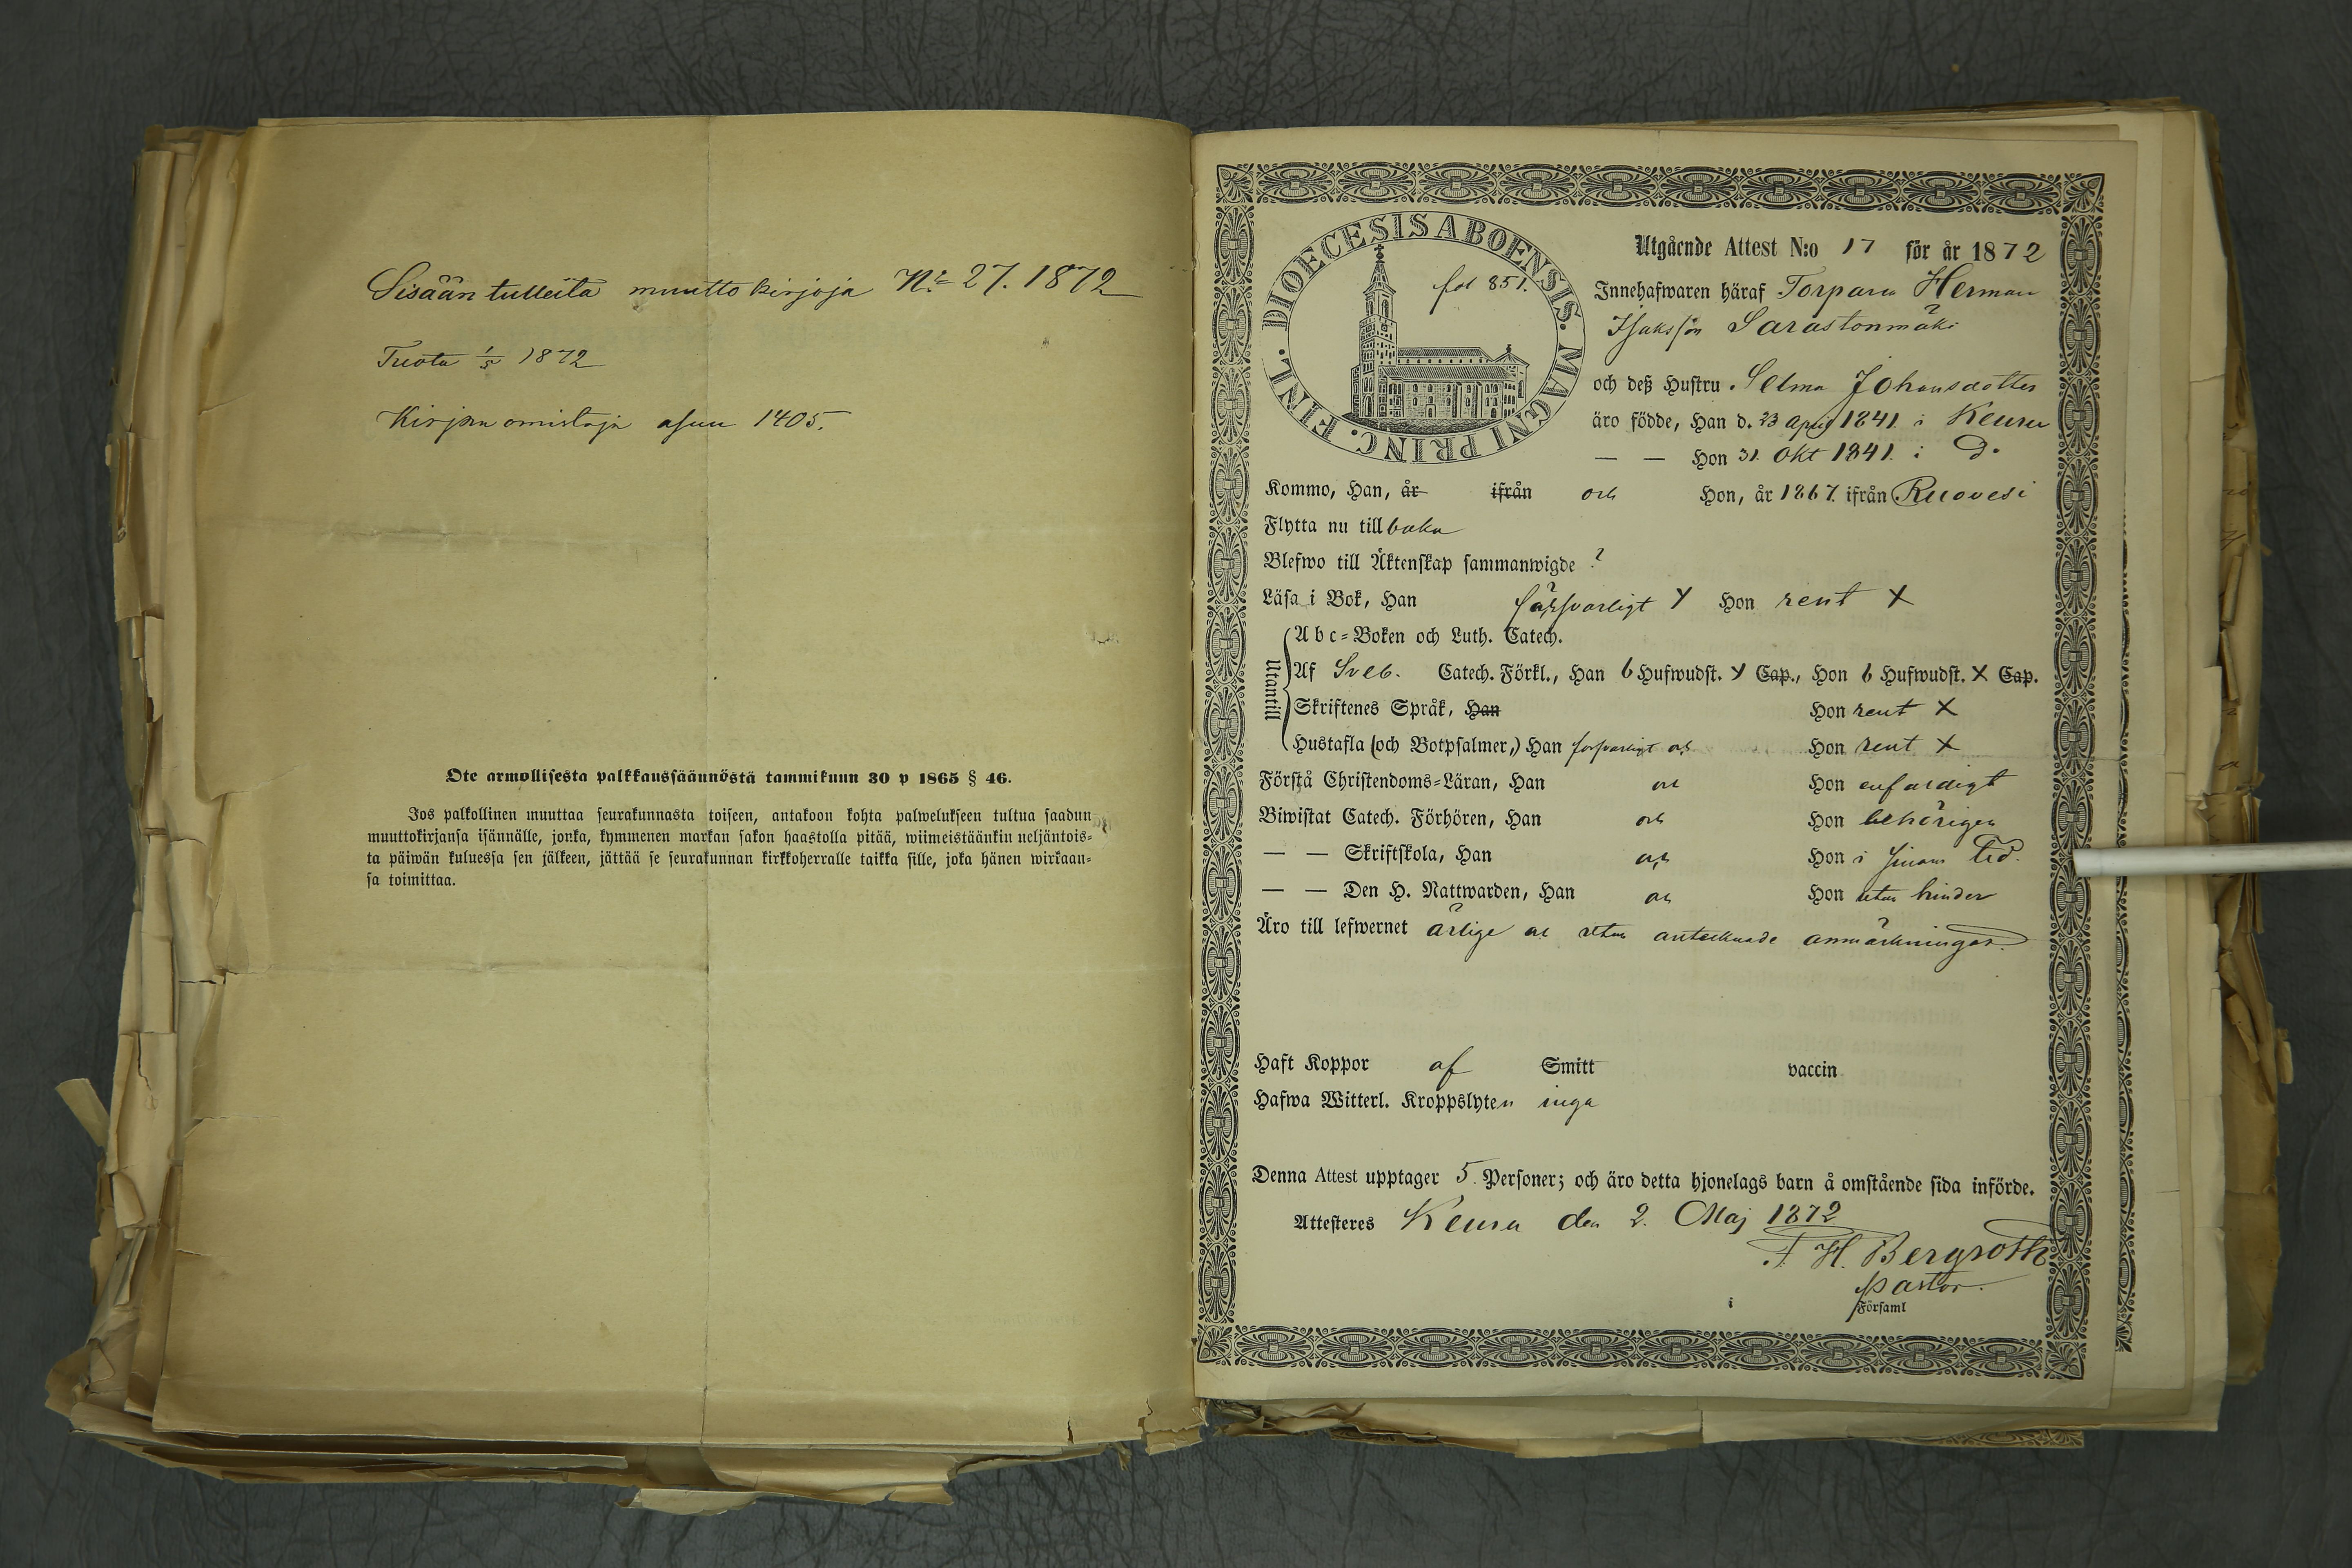 Sisään tulleita muuttokirjoja N:o 27. 1872
Tuotu 1/5 1872
Kirjan omistaja asuu 1405.
Ote armollisesta palkkaussäännöstä tammikuun 30 p 1865 § 46.
Jos palkollinen muuttaa seurakunnasta toiseen, antakoon kohta palwelukseen tultua saadun
muuttokirjansa isännälle, jonka, kymmenen markan sakon haastolla pitää, wiimeistäänkin neljäntois-
ta päiwän kuluessa sen jälkeen, jättää se seurakunnan kirkkoherralle taikka sille, joka hänen wirkaan-
sa toimittaa.
DIOECESIS ABOENSIS. MAGNI PRINC. FINL.
fol 851.
Utgående Attest N:o 17 för år 1872
Innehafwaren häraf Torparen Herman
Isaksson Sarastonmäki
och deß Hustru Selma Johansdotter
äro födde, Han d. 23 April 1841 i Keuru
— — Hon 31 Okt 1841 i D:o
Kommo, Han, år ifrån och Hon, år 1867 ifrån Ruovesi
Flytta nu tillbaka
Blefwo till Äktenskap sammanwigde ?
Läsa i Bok, Han försvarligt Y Hon rent X
Utantill
Abc-Boken och Luth. Catech.
Af Sveb. Catech. Förkl., Han 6 Hufwudst. Y Cap., Hon 6 Hufwudst. X Cap.
Skriftenes Språk, Han Hon rent X
Hustafla (och Botpsalmer,) Han försvarligt och Hon rent X
Förstå Christendoms-Läran, Han och Hon enfaldigt
Biwistat Catech. Förhören, Han och Hon behörigen
— — Skriftskola, Han och Hon i sinom tid.
— — Den H. Nattwarden, Han och Hon utan hinder
Äro till lefwernet ärlige och utan antecknade anmärkningar.
Haft Koppor af Smitt vaccin
Hafwa Witterl. Kroppslyten inga
Denna Attest upptager 5 Personer; och äro detta hjonelags barn å omstående sida införde.
Attesteres Keuru den 2. Maj 1872
F. H. Bergroth
Pastor.
i Församl